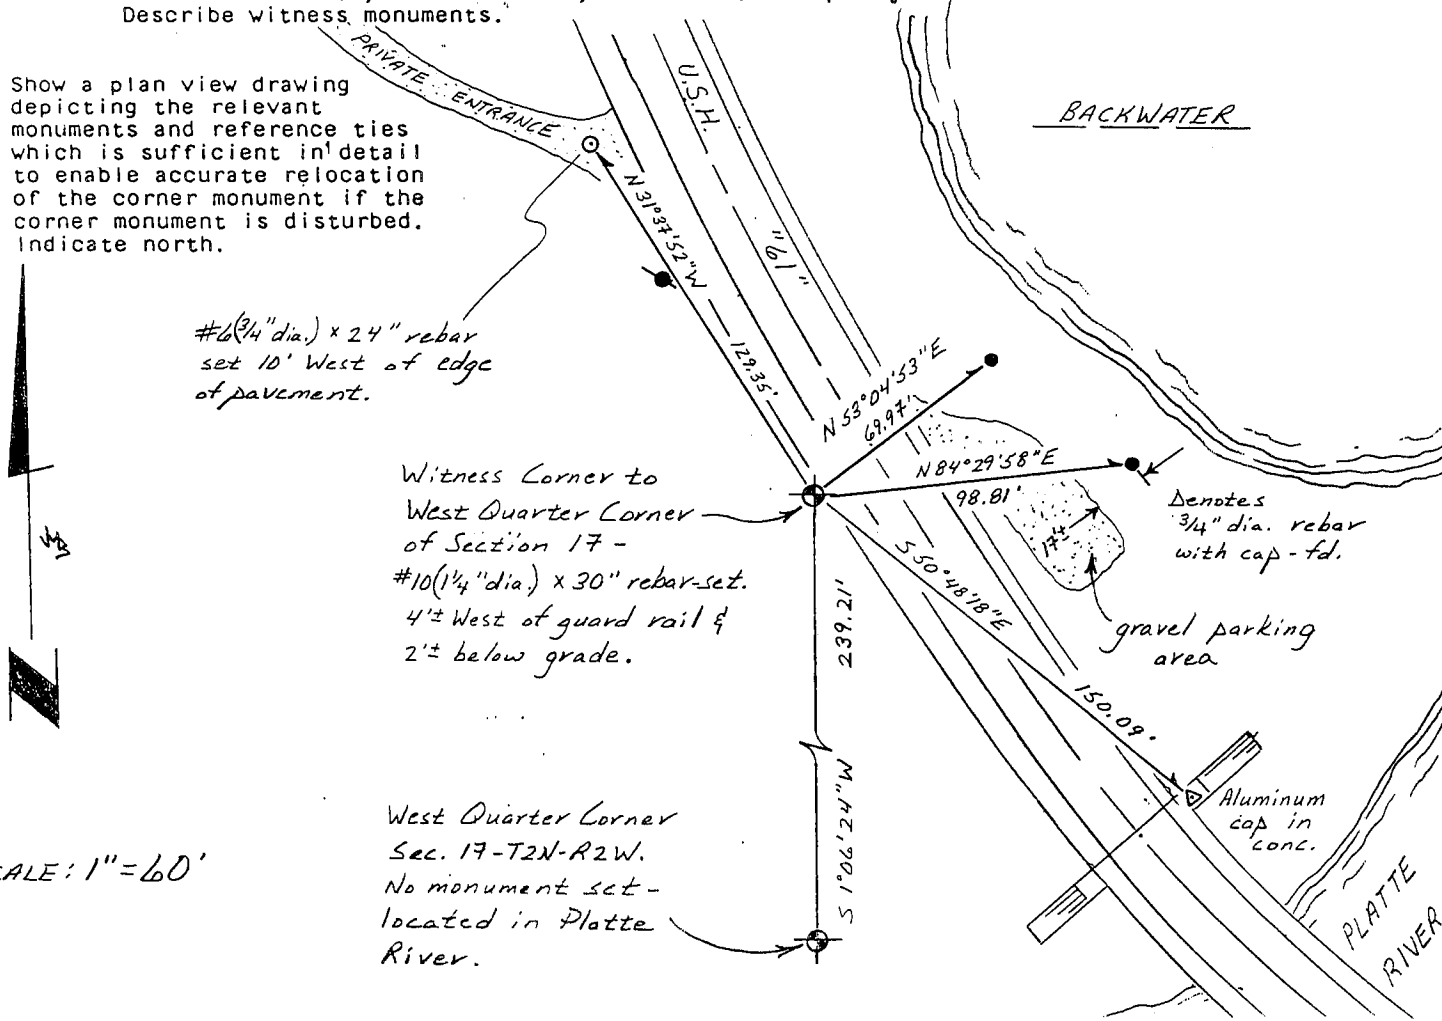 Describe witness monuments.
Show a plan view drawing
depicting the relevant
monuments and reference ties
which is sufficient in detail
to enable accurate relocation
of the corner monument if the
corner monument is disturbed.
Indicate north.
PRIVATE ENTRANCE
U.S.H.
"61"
BACKWATER
N 31°37'52" W
129.35'
#6(3/4" dia.) x 24" rebar
set 10' West of edge
of pavement.
N 53°04'53" E
69.97'
N 84°29'58" E
98.81'
Denotes
3/4" dia. rebar
with cap - fd.
17'±
gravel parking
area
Witness Corner to
West Quarter Corner
of Section 17 -
#10(1 1/4" dia.) x 30" rebar-set.
4'± West of guard rail &
2'± below grade.
S 50°48'18" E
150.09'
239.21'
S 1°06'24" W
Aluminum
cap in
conc.
West Quarter Corner
Sec. 17-T2N-R2W.
No monument set -
located in Platte
River.
N
ALE: 1"=60'
PLATTE
RIVER